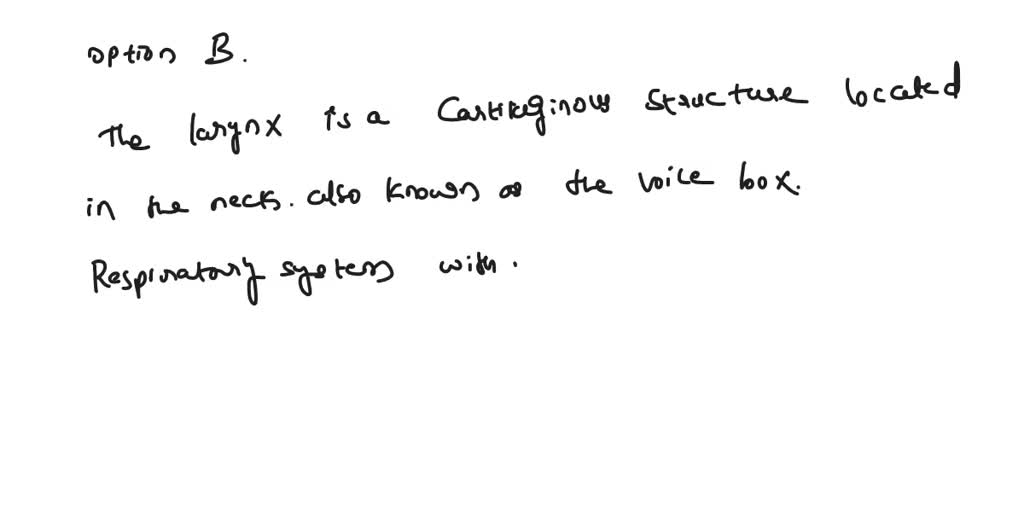 option B.
The larynx is a Cartilaginous structure located
in the neck. also known as the voice box.
Respiratory system with.